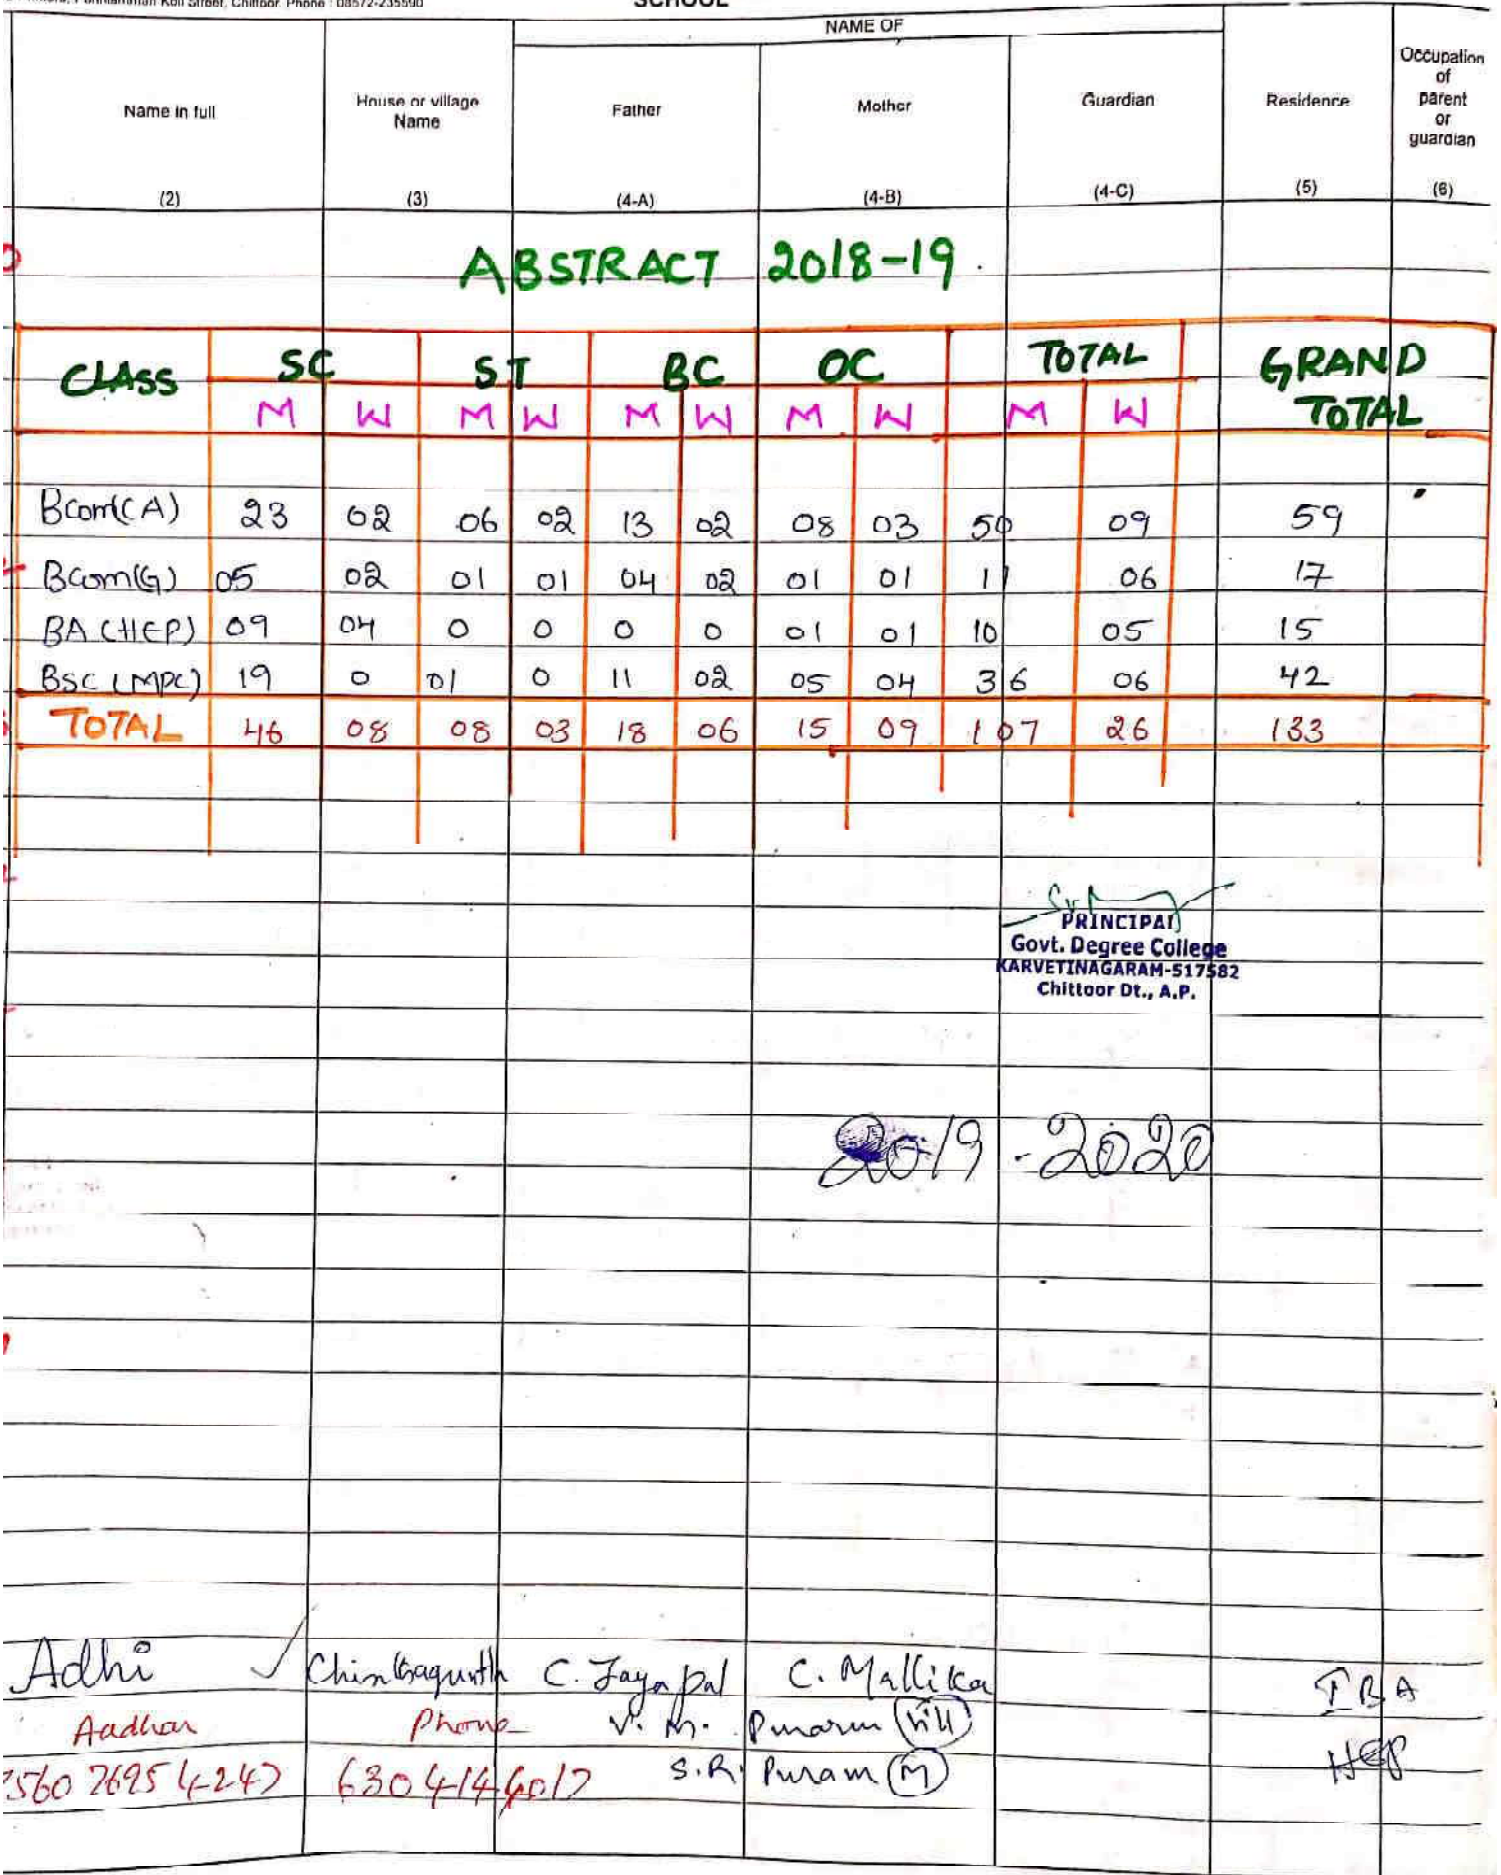 Street, Chittoor. Phone : 08572-235590
SCHOOL
NAME OF
Name in full House or village Name Father Mother Guardian Residence Occupation of parent or guardian
(2) (3) (4-A) (4-B) (4-C) (5) (6)
ABSTRACT 2018-19.
CLASS SC ST BC OC TOTAL GRAND TOTAL
M W M W M W M W M W
Bcom(CA) 23 02 06 02 13 02 08 03 50 09 59
Bcom(G) 05 02 01 01 04 02 01 01 11 06 17
BA (HEP) 09 04 0 0 0 0 01 01 10 05 15
BSC (MPC) 19 0 01 0 11 02 05 04 36 06 42
TOTAL 46 08 08 03 18 06 15 09 107 26 133
PRINCIPAL
Govt. Degree College
KARVETINAGARAM-517582
Chittoor Dt., A.P.
2019 - 2020
Adhi C. Jayapal C. Mallika I BA
Aadhar Phone V. M. Puram (Vill) HEP
S.R. Puram (M)